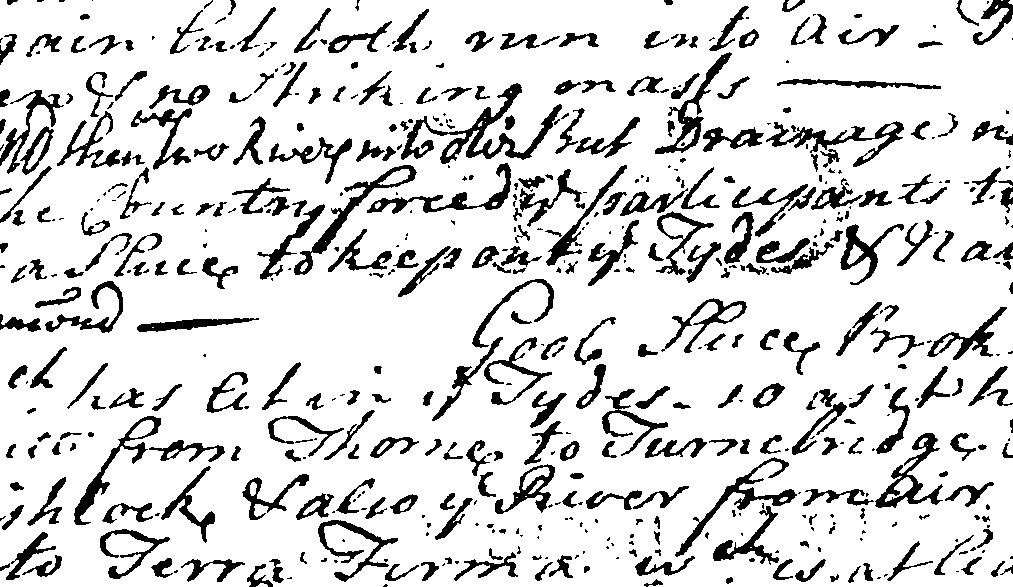 gain but both run into Air -
no Striking mass
then two Rivers into Air But Drainage
he Country forced ye participants
a Sluice to keep out ye Tydes & Na
Gool Sluice Brok
ch has let in ye Tydes - so as it h
from Thorne to Turnebridge
lock & also ye River from Air
to Terra Firma wch is at lea